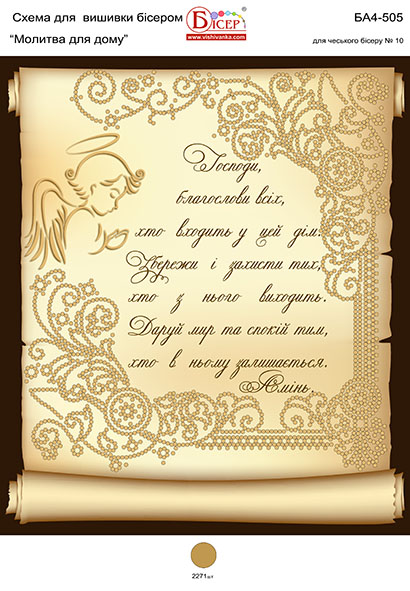 Схема для вишивки бісером
БІСЕР
www.vishivanka.com
БА4-505
"Молитва для дому"
для чеського бісеру № 10
Господи,
благослови всіх,
хто входить у цей дім.
Збережи і захисти тих,
хто з нього виходить.
Даруй мир та спокій тим,
хто в ньому залишається.
Амінь
2271шт